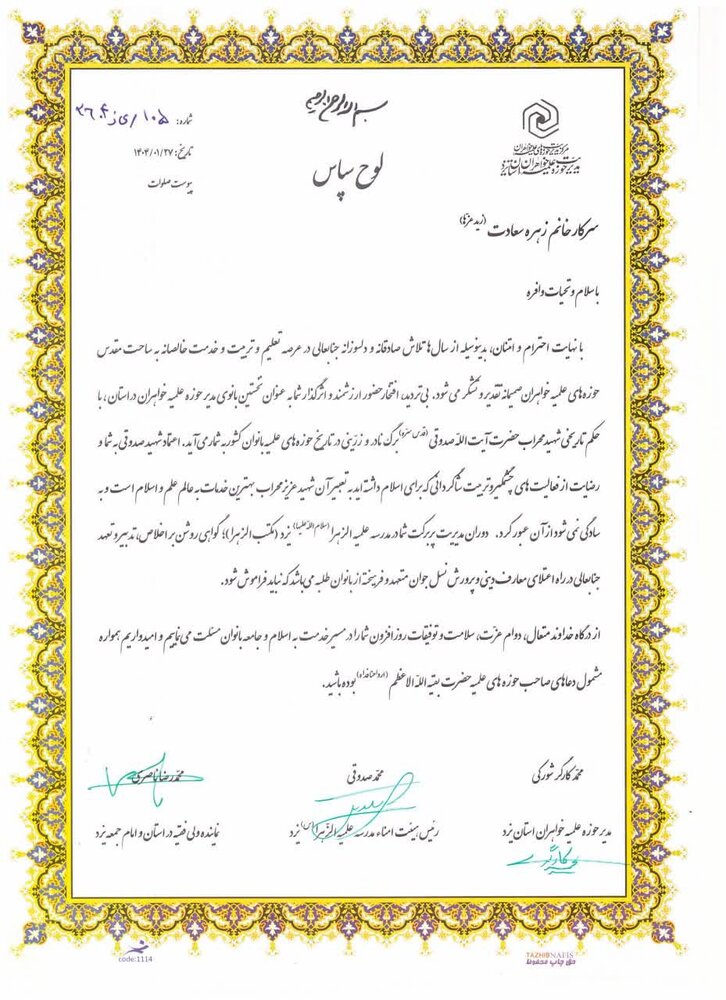 بسم الله الرحمن الرحیم
مرکز مدیریت حوزه‌های علمیه خواهران
مدیریت حوزه علمیه خواهران استان یزد
شماره:
تاریخ: ۱۴۰۴/۰۱/۲۷
پیوست صلوات
لوح سپاس
سرکار خانم زهره سعادت (زید عزها)
با سلام و تحیات وافره
با نهایت احترام و امتنان، بدینوسیله از سال‌ها تلاش صادقانه و دلسوزانه جنابعالی در عرصه تعلیم و تربیت و خدمت خالصانه به ساحت مقدس
حوزه های علمیه خواهران صمیمانه تقدیر و تشکر می شود. بی تردید، افتخار حضور ارزشمند و اثرگذار شما به عنوان نخستین بانوی مدیر حوزه علمیه خواهران در استان، با
حکم تاریخی شهید محراب حضرت آیت الله صدوقی (قدس سره) برگ نادر و زرینی در تاریخ حوزه های علمیه بانوان کشور به شمار می آید. اعتماد شهید صدوقی به شما و
رضایت از فعالیت های چشمگیر و تربیت شاگردانی که برای اسلام داشته اید به تعبیر آن شهید عزیز محراب بهترین خدمات به عالم علم و اسلام است و به
سادگی نمی شود از آن عبور کرد. دوران مدیریت پربرکت شما در مدرسه علمیه الزهرا (سلام الله علیها) یزد (مکتب الزهرا)؛ گواهی روشن بر اخلاص، تدبیر و تعهد
جنابعالی در راه اعتلای معارف دینی و پرورش نسل جوان متعهد و فرهیخته از بانوان طلبه می باشد که نباید فراموش شود.
از درگاه خداوند متعال، دوام عزت، سلامت و توفیقات روز افزون شما را در مسیر خدمت به اسلام و جامعه بانوان مسئلت می نماییم و امیدواریم همواره
مشمول دعاهای صاحب حوزه های علمیه حضرت بقیه الله الاعظم (ارواحنا فداه) بوده باشید.
محمد کارگر شورکی
مدیر حوزه علمیه خواهران استان یزد
محمد صدوقی
رئیس هیئت امناء مدرسه علمیه الزهرا (س) یزد
محمدرضا ناصری
نماینده ولی فقیه در استان و امام جمعه یزد
code:1114
TAZHIBNAFIS
حق چاپ محفوظ